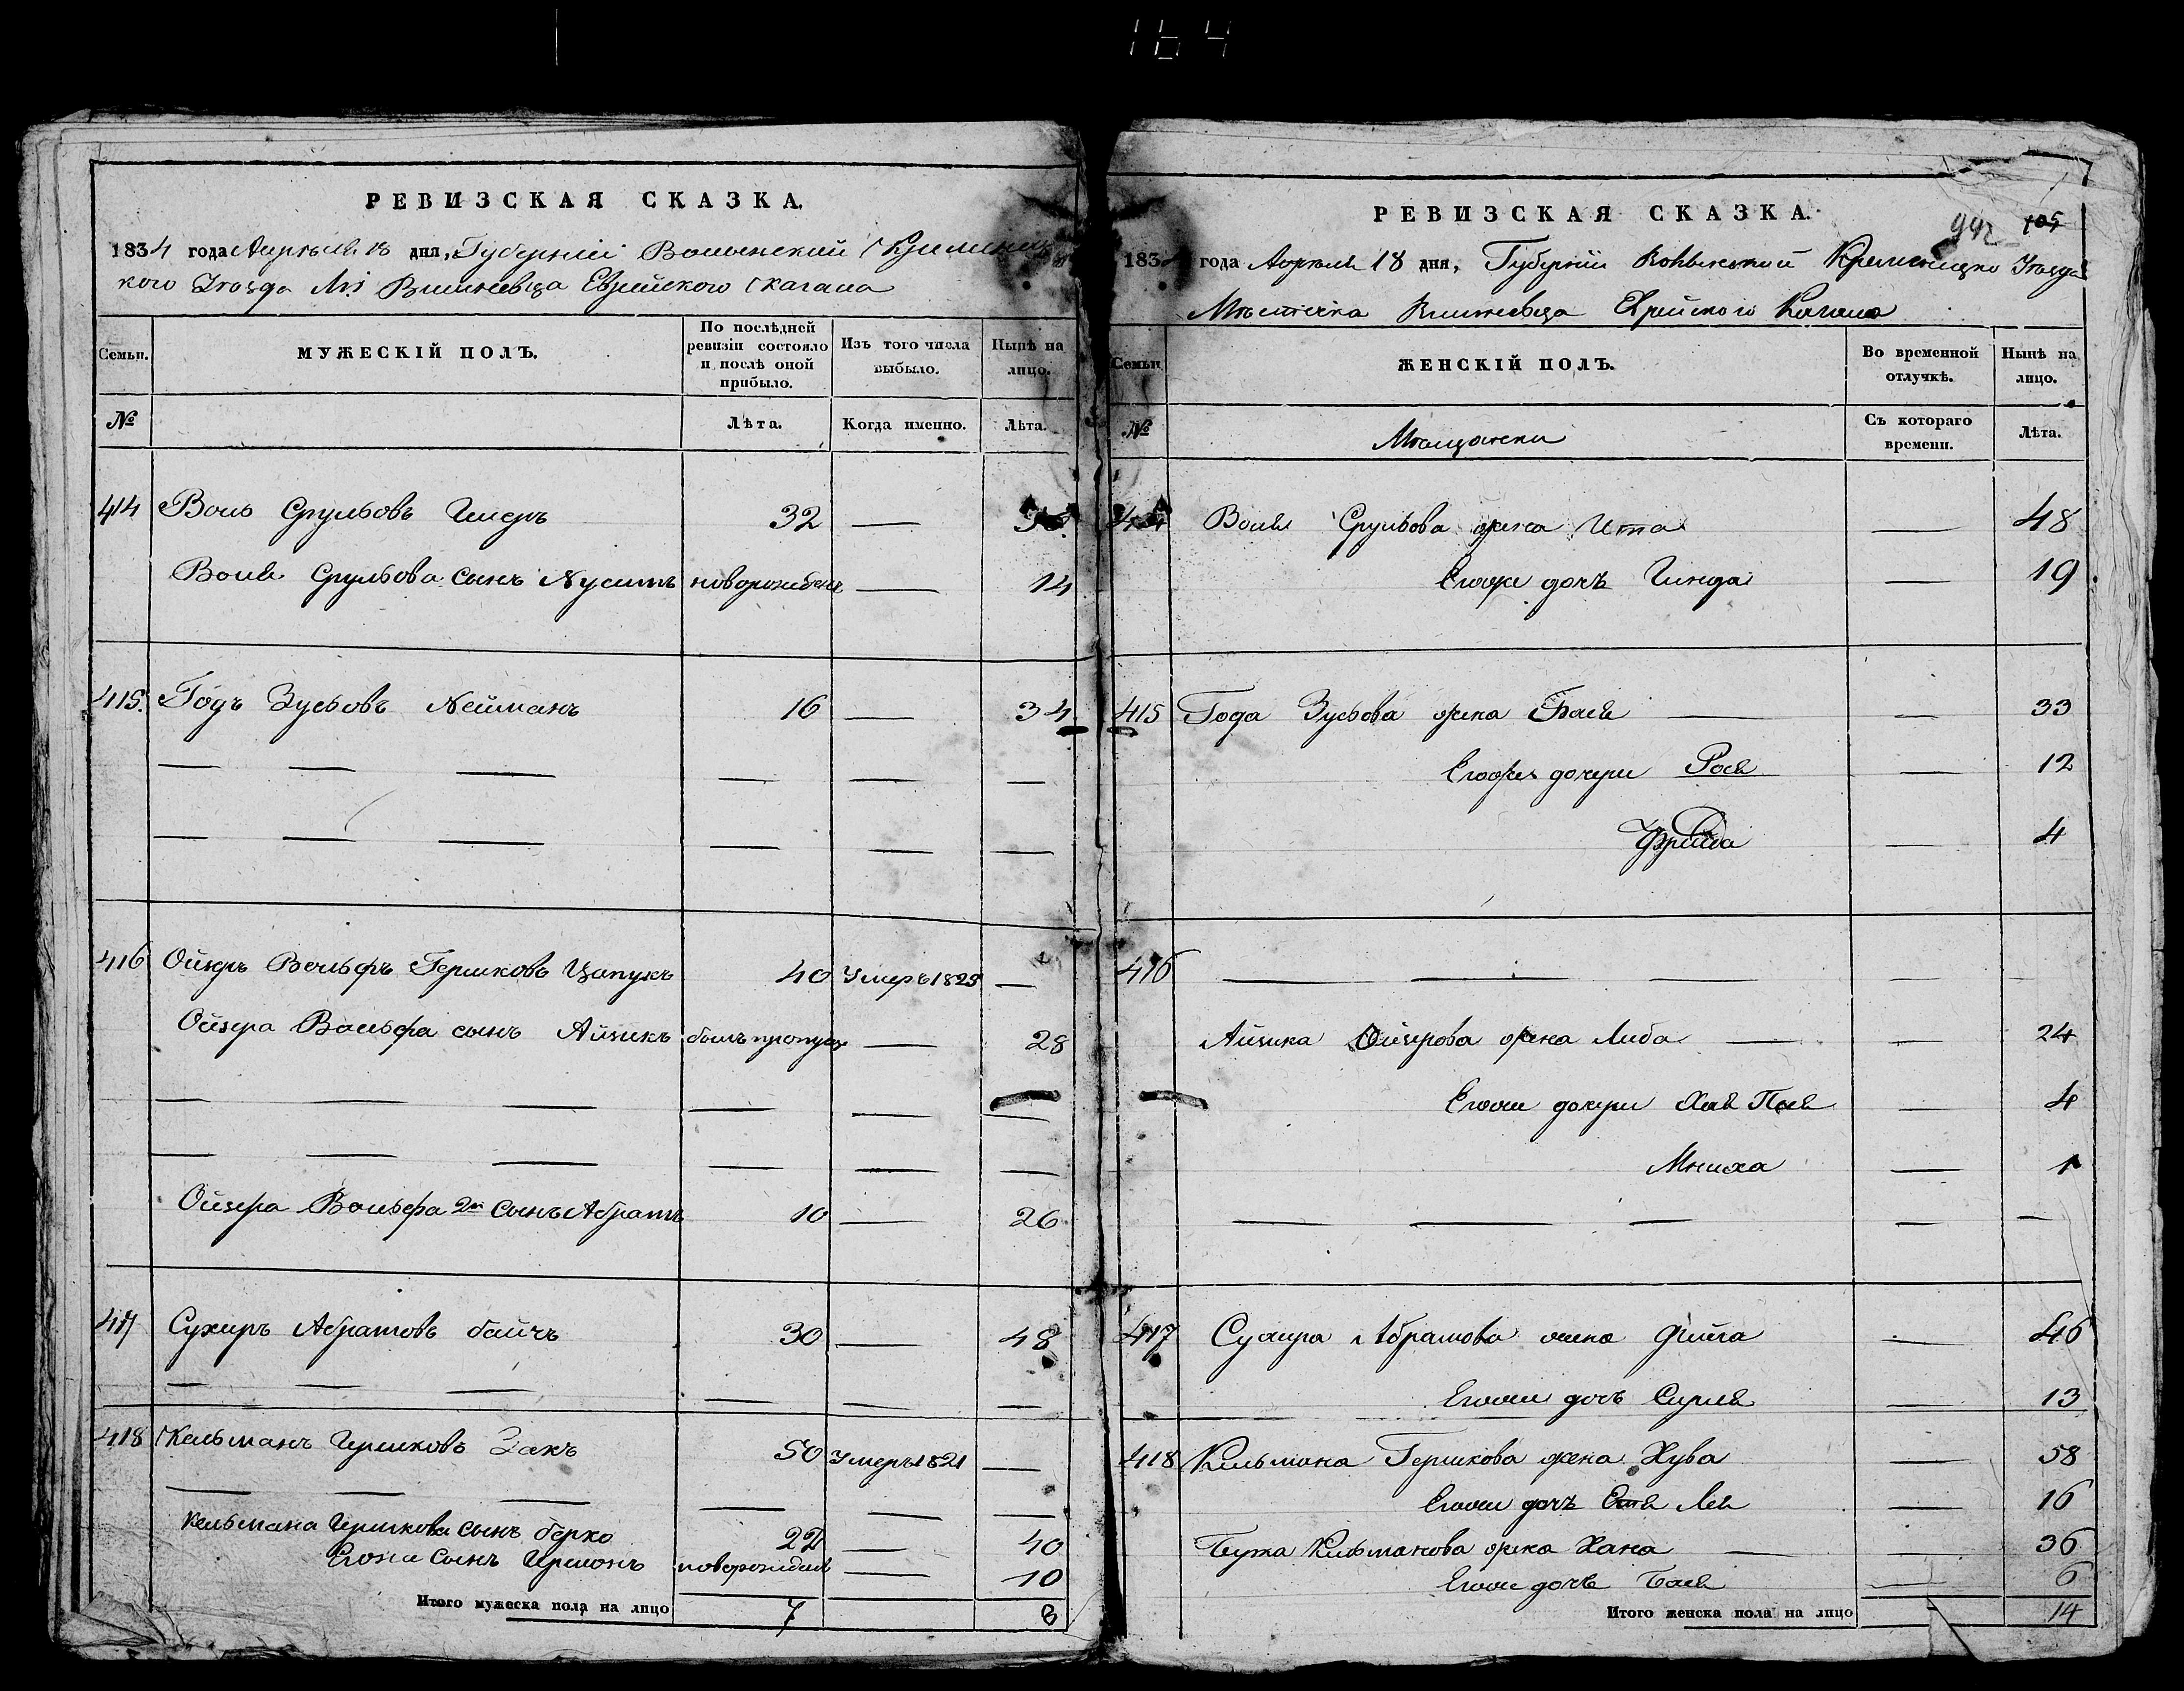 164
РЕВИЗСКАЯ СКАЗКА.
1834 года Апрѣля 18 дня, Губерніи Волынский Кременец
кого Уѣзда М: Вишневца Еврейского Кагала
Семьи. МУЖЕСКІЙ ПОЛЪ. По послѣдней ревизіи состояло и послѣ оной прибыло. Изъ того числа выбыло. Нынѣ на лицо.
№ Лѣта. Когда именно. Лѣта.
414 Воль Срульовъ 32 —
Воля Срульова сынъ Нусимъ новорожден — 14
415. Годъ Зусьовъ Нейманъ 16 — 34
— — — — — —
— — — — — —
416 Ойзеръ Вольфъ Гершковъ Цапукъ 40 Умеръ 1825 —
Ойзера Вольфа сынъ Айзикъ былъ пропущ — 28
— — — — — —
— — — — — —
Ойзера Вольфа 2й сынъ Абрамъ 10 — 26
417 Сухеръ Абрамовъ байчъ 30 — 48
— — — — — —
418 Кельманъ Гершковъ Закъ 50 Умеръ 1821 —
— — — — — —
Кельмана Гершкова сынъ берко 22 — 40
Егоже сынъ Гершонъ новорожден — 10
Итого мужеска пола на лицо 7 8
РЕВИЗСКАЯ СКАЗКА.
105
1834 года Апреля 18 дня, Губерніи Волынской Кременецко Уѣзда
Мѣстечка Вишневца Еврейского Кагала
Семьи ЖЕНСКІЙ ПОЛЪ. Во временной отлучкѣ. Нынѣ на лицо.
№ Мѣщански Съ котораго времени. Лѣта.
414 Воля Срульова жена Ита — 48
Егоже дочь Гинда — 19
415 Года Зусьова жена Бася — — 33
Егоже дочери Рося — 12
Фрейда — 4
416 — — — — —
Айзика Ойзерова жена Либа — — 24
Егоже дочери Хая Песя — 4
Мниха — 1
— — — — —
417 Сухера Абрамова жена Фейга — 46
Егоже дочь Сурля — 13
418 Кельмана Гершкова жена Хува — 58
Егоже дочь Лея — 16
Берка Кельманова жена Хана — — 36
Егоже дочь Бася — 6
Итого женска пола на лицо 14